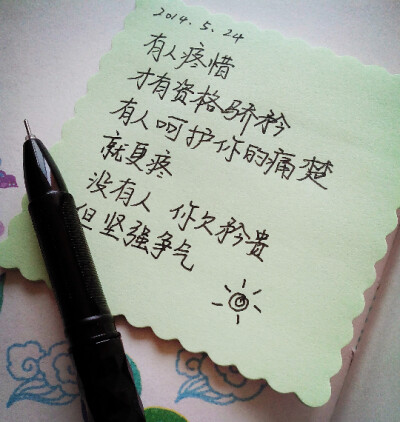 2014.5.24
有人疼惜
才有资格骄矜
有人呵护你的痛楚
就更疼
没有人 你欠矜贵
但坚强争气